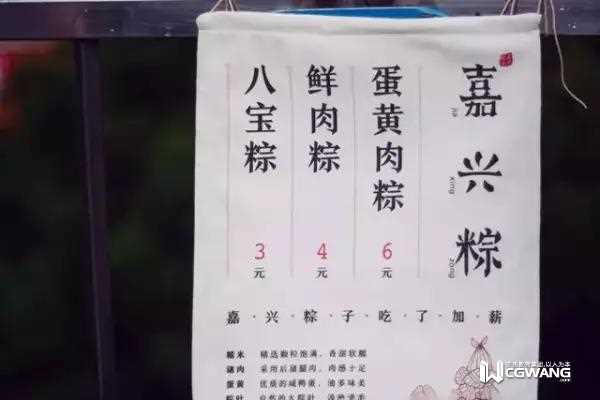 嘉兴粽
jia xing zong
蛋黄肉粽
6元
鲜肉粽
4元
八宝粽
3元
嘉·兴·粽·子·吃·了·加·薪
糯米 精选颗粒饱满,香甜软糯
猪肉 采用后猪腿肉,肉感十足
蛋黄 优质的咸鸭蛋,油多味美
粽叶
CGWANG.COM